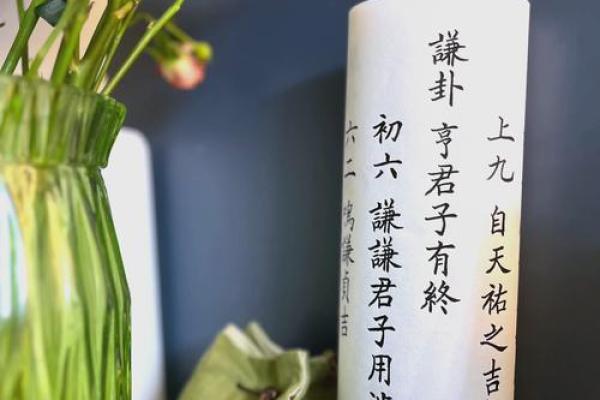 上九 自天祐之吉
謙卦 亨君子有終
初六 謙謙君子用
六二 鳴謙貞吉